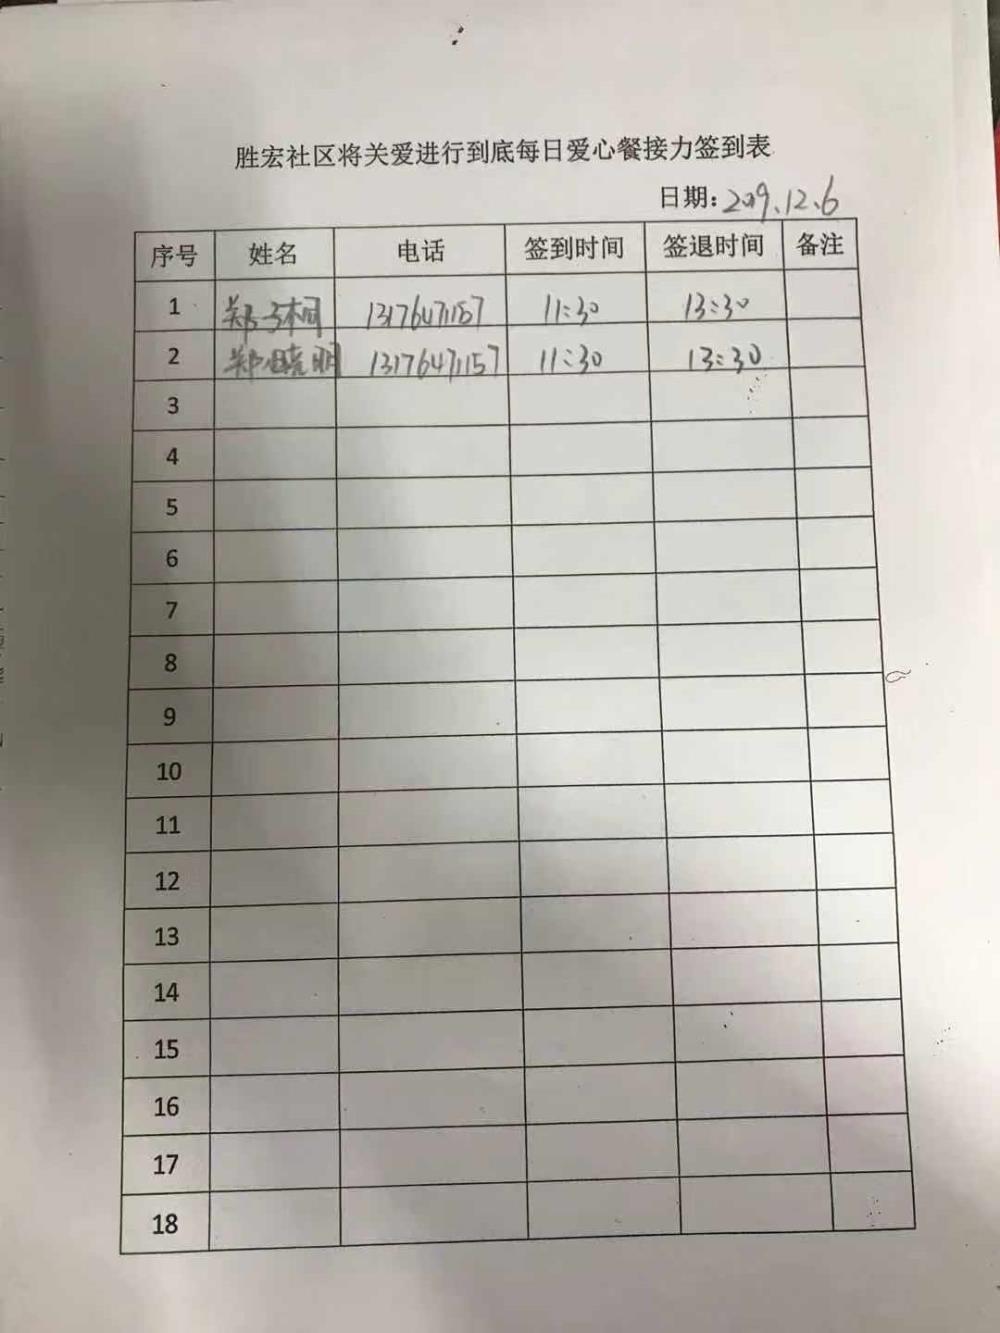 胜宏社区将关爱进行到底每日爱心餐接力签到表
日期：2019.12.6
序号 姓名 电话 签到时间 签退时间 备注
1 郑子桐 13176471157 11:30 13:30
2 郑晓明 13176471157 11:30 13:30
3
4
5
6
7
8
9
10
11
12
13
14
15
16
17
18